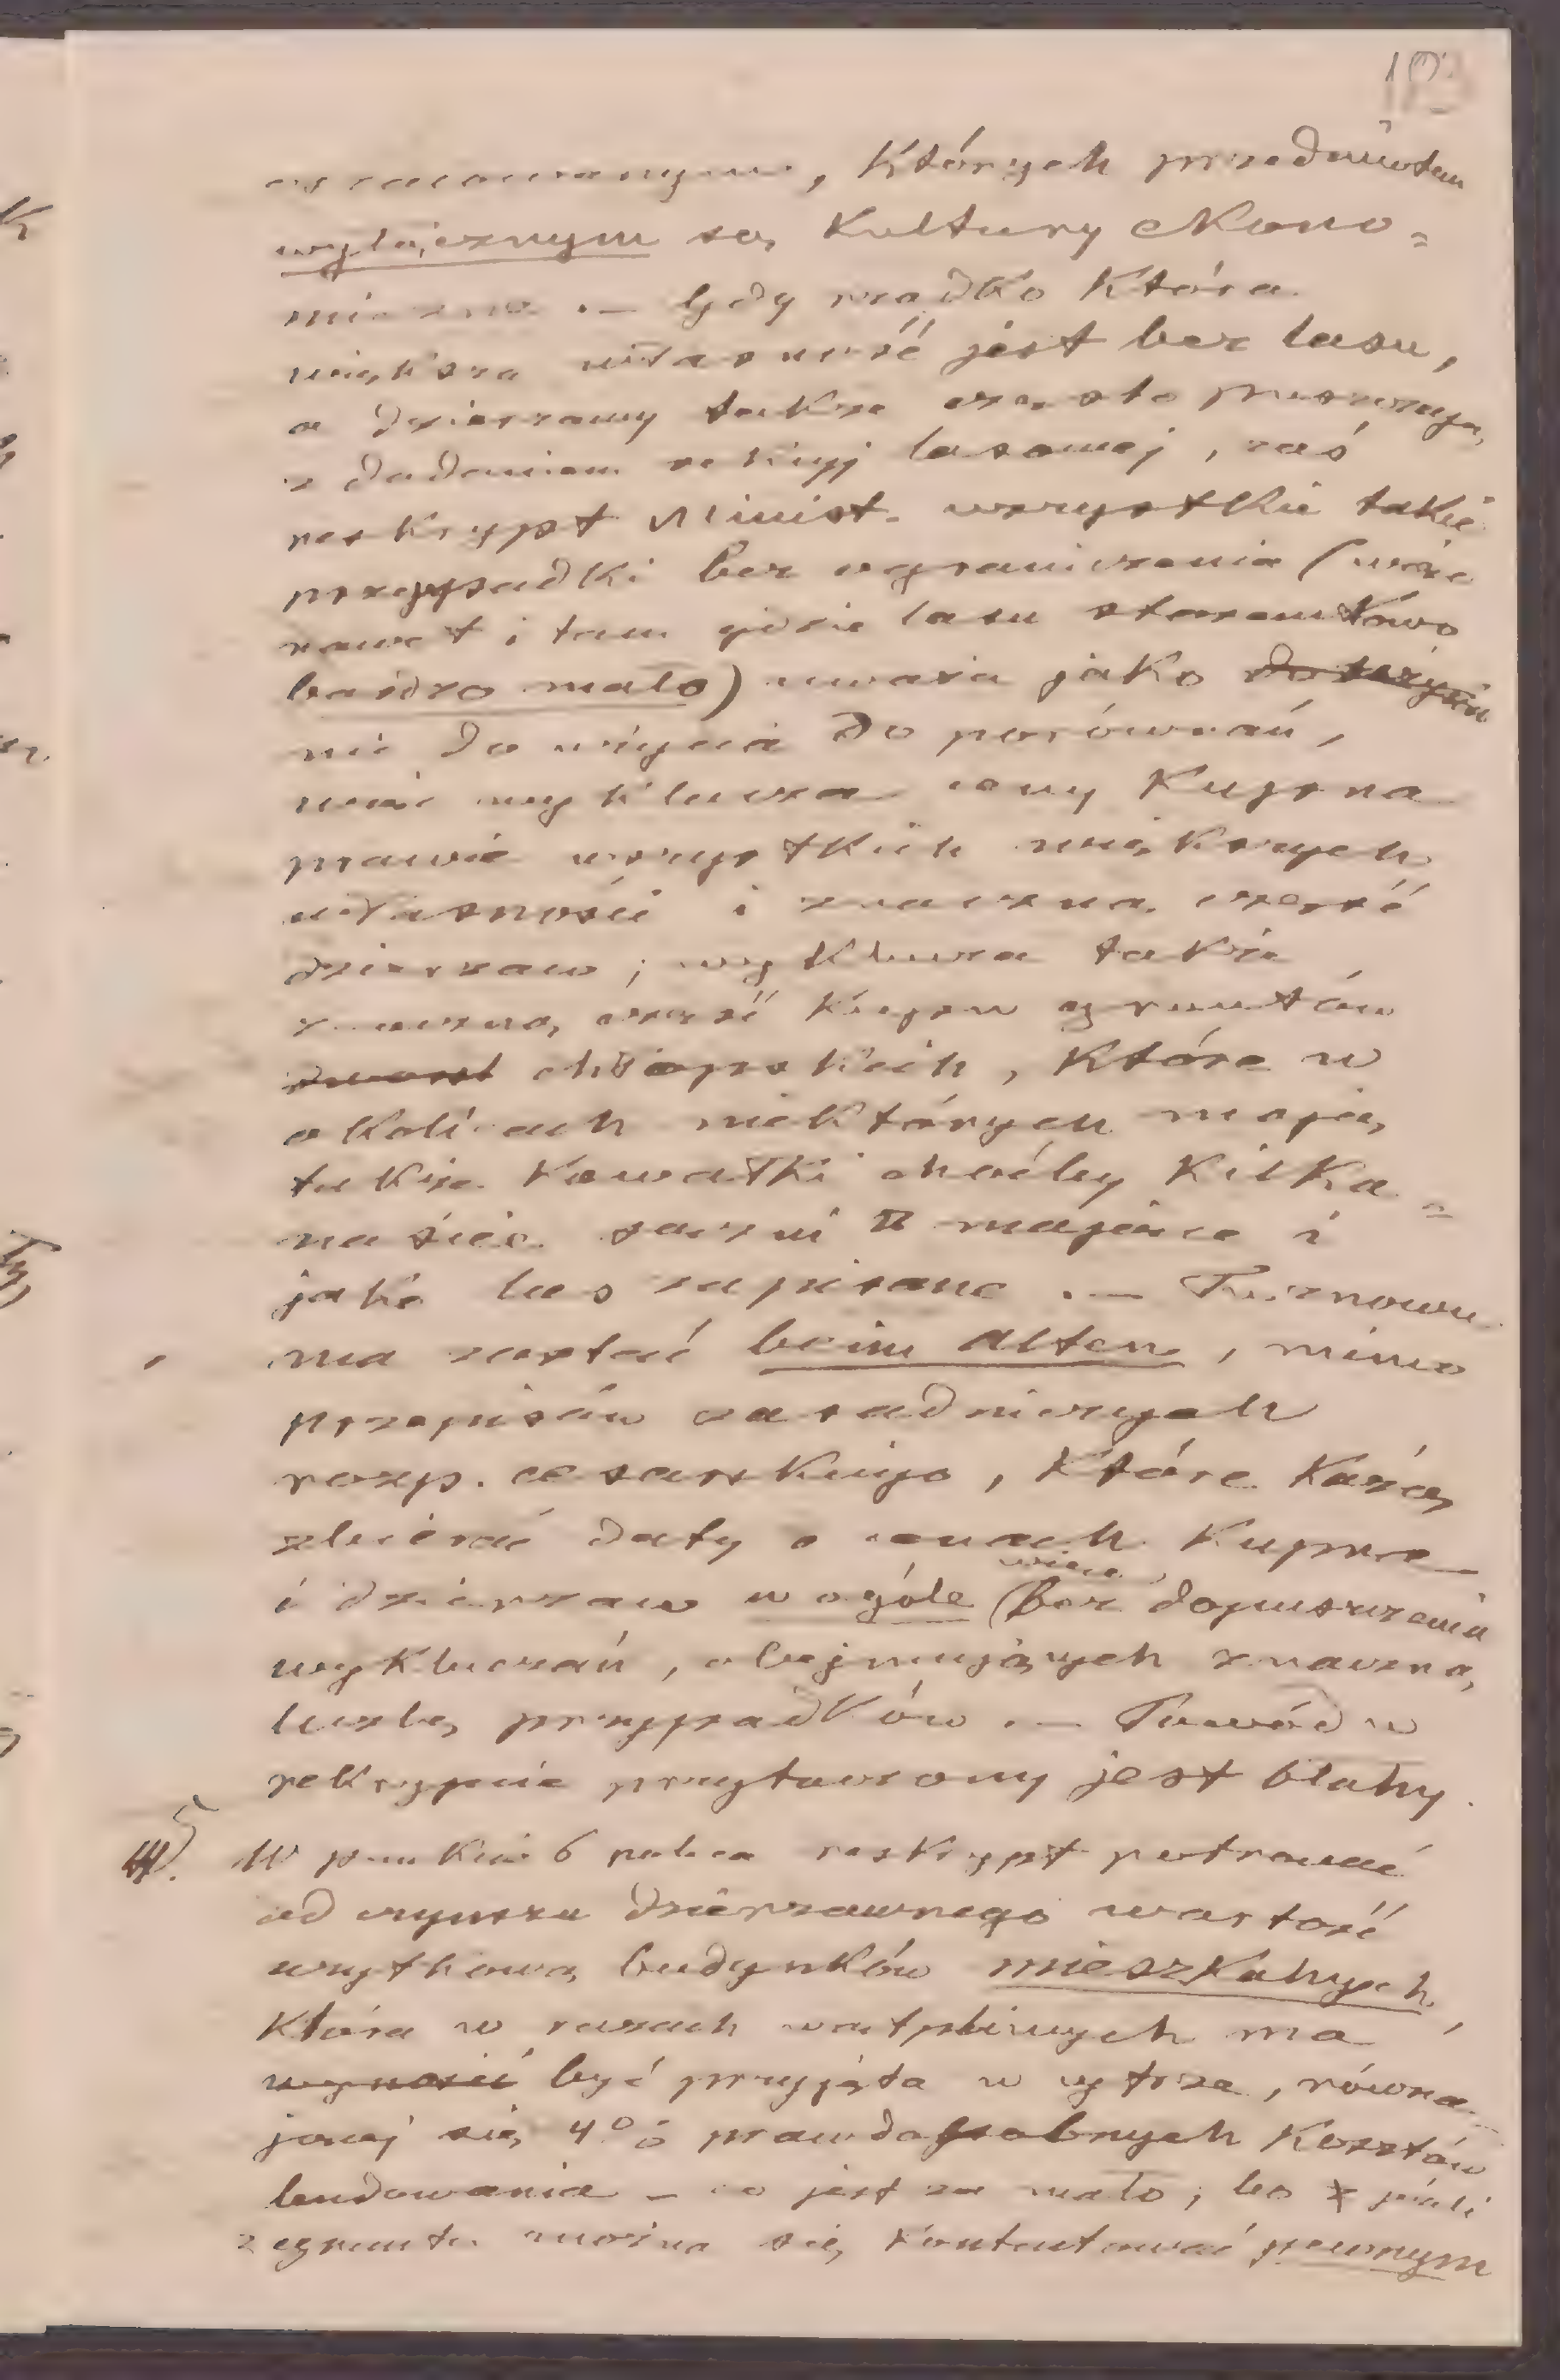 103
oszacowanym, których przedmiotem
wyłącznym są kultury ekono=
miczne. — Gdy rzadko która
większa własność jest bez lasu,
a dzierzawy także często puszczają
z dodaniem sekcyj lasowej, zaś
reskrypt Minist. wszystkie takie
przypadki bez ograniczenia (więc
nawet i tam gdzie lasu stosunkowo
bardzo mało) uważa jako
nie do użycia do porównań,
więc wyklucza ceny kupna
prawie wszystkich większych
własności i znaczną część
dzierzaw; wyklucza także
znaczną część kupn gruntów
dworsk chłopskich, które w
okolicach niektórych mają
także kawałki choćby kilka=
naście sązni □ mające i
jako las zapisane. — Tu znowu
ma zostać beim alten, mimo
przepisów zasadniczych
rozp. cesarskiego, które każą
zbierać daty o cenach kupna
i dzierzaw w ogóle (więc bez dopuszczenia
wykluczań, obejmujących znaczną
liczbę przypadków. — Powód w
reskrypcie przytoczony jest błahy.
5. W punkcie 6 poleca reskrypt potrącać
od czynszu dzierzawnego wartość
użytkową budynków mieszkalnych,
która w razach wątpliwych ma
wynosić być przyjęta w cyfrze, równa=
jącej się 4% prawdopodobnych kosztów
budowania – co jest za mało; bo jeżeli
z gruntu można się kontentować pewnym